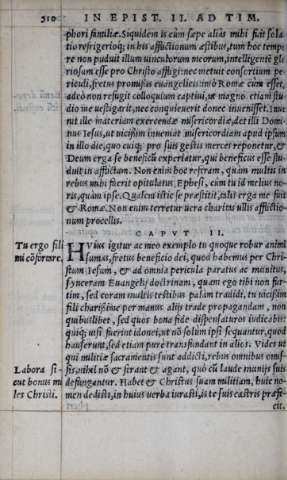 510 IN EPIST. II. AD TIM.
phori familiæ. Siquidem is cùm sæpe aliàs mihi fuit sola
tio refrigerioq; in his afflictionum æstibus, tum hoc tempo
re non puduit illum uinculorum meorum, intelligentē glo
riosum esse pro Christo affligi: nec metuit consortium pe
riculi, fretus promissis euangelicis: imò Romæ cùm esset,
adeò non refugit colloquium captiui, ut magno etiam stu
dio me uestigarit, nec conquieuerit donec inuenisset. Inue
nit ille materiam exercendæ misericordiæ, det illi Domi
nus Iesus, ut uicissim inueniat misericordiam apud ipsum
in illo die, quo cuiq; pro suis gestis merces reponetur, &
Deum erga se beneficū experiatur, qui beneficus esse stu
duit in afflictam. Non enim hoc referam, quàm multis in
rebus mihi fuerit opitulatus Ephesi, cùm tu id melius no-
ris, quàm ipse. Qualem istic se præstitit, talis erga me fuit
& Romæ. Non enim terretur uera charitas ullis afflictio-
num procellis.
CAPVT II.
Tu ergo fili
mi cōfortare.
HVius igitur ac meo exemplo tu quoque robur animi
sumas, fretus beneficio dei, quod habemus per Chri-
stum Iesum, & ad omnia pericula paratus ac munitus,
synceram Euangelij doctrinam, quam ego tibi non fur-
tim, sed coram multis testibus palàm tradidi, tu uicissim
fili charissime per manus alijs trade propagandam, non
quibuslibet, sed quos bona fide dispensaturos iudicabis:
quiq; uisi fuerint idonei, ut nō solùm ipsi sequantur, quod
hauserunt, sed etiam purè transfundant in alios. Vides ut
qui militiæ sacramentis sunt addicti, rebus omnibus omis-
sis, nihil nō & ferant & agant, quò cū laude munijs suis
defungantur. Habet & Christus suam militiam, huic no-
men dedisti, in huius uerba iurasti, is te suis castris præfe-
cit.
Labora si-
cut bonus mi
les Christi.